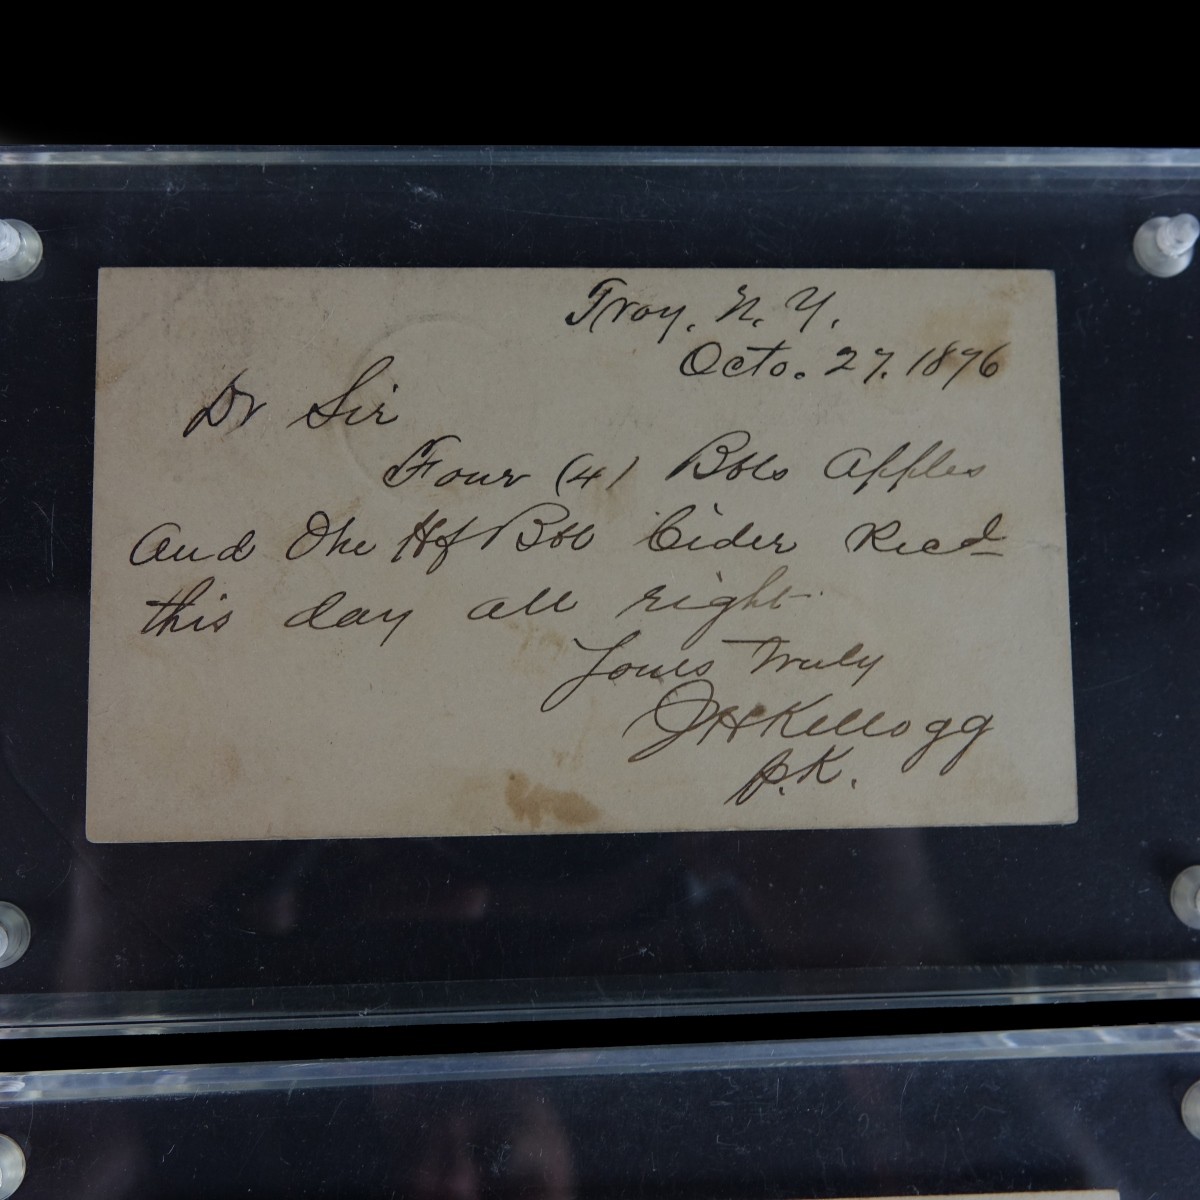 Troy, N. Y.
Octo. 27. 1896
Dr Sir
Four (4) Bbls Apples
And One Hf Bbl Cider Recd
this day all right
Yours Truly
JHKellogg
p.K.